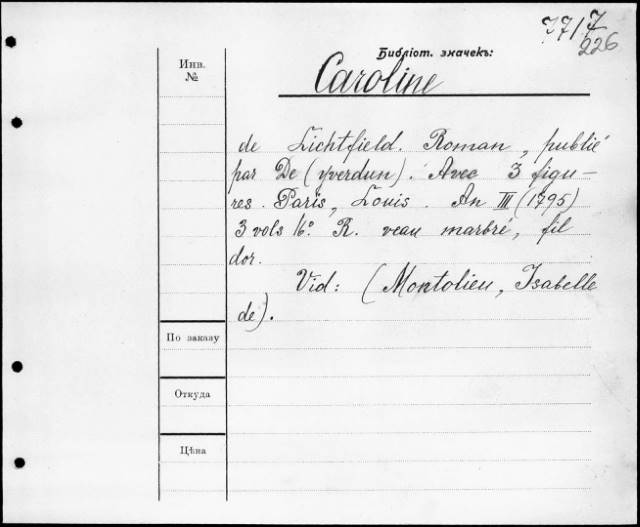 771 7/226
Библіот. значекъ:
Инв.
№
Caroline
de Lichtfield. Roman, publié
par De (yverdun). Avec 3 figu-
res. Paris, Louis. An III (1795)
3 vols 16°. R. veau marbré, fil
dor.
Vid: (Montolieu, Isabelle
de).
По заказу
Откуда
Цѣна